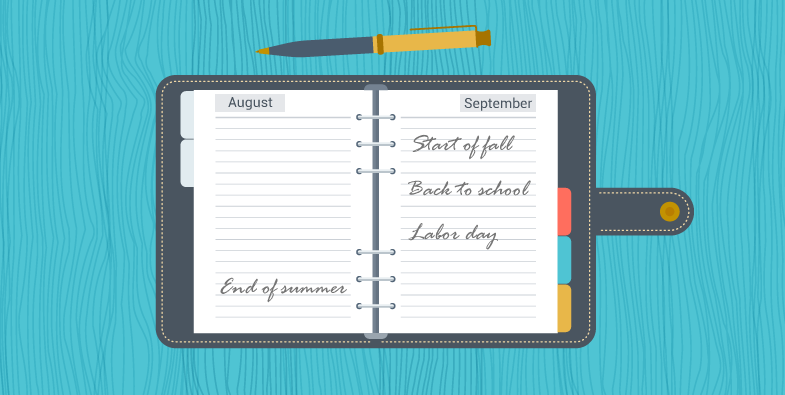 August
End of summer
September
Start of fall
Back to school
Labor day